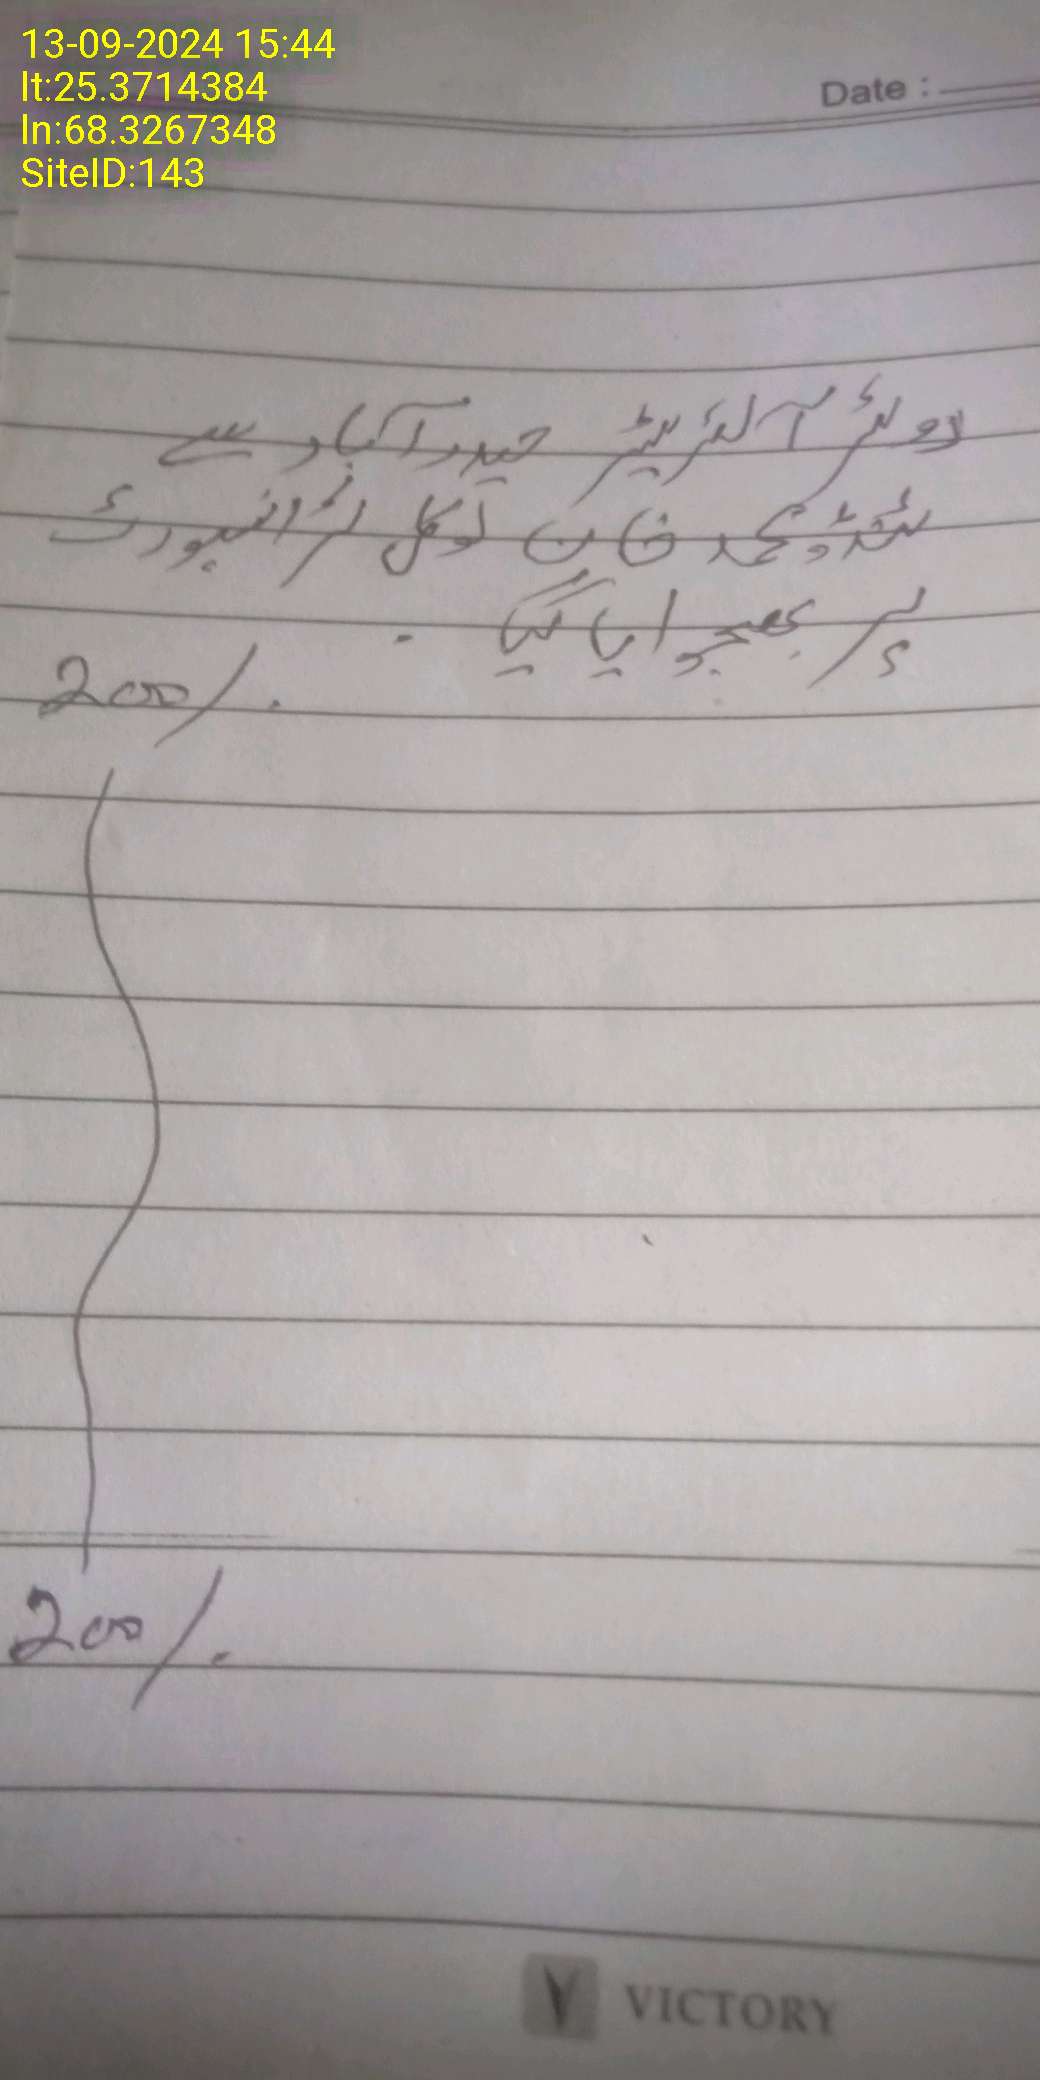 13-09-2024 15:44
lt:25.3714384
ln:68.3267348
SiteID:143
Date :
حیدرآباد سے
ٹنڈو محمد خان لوکل ٹرانسپورٹ
بھجوایا گیا ۔
200/.
200/.
VICTORY